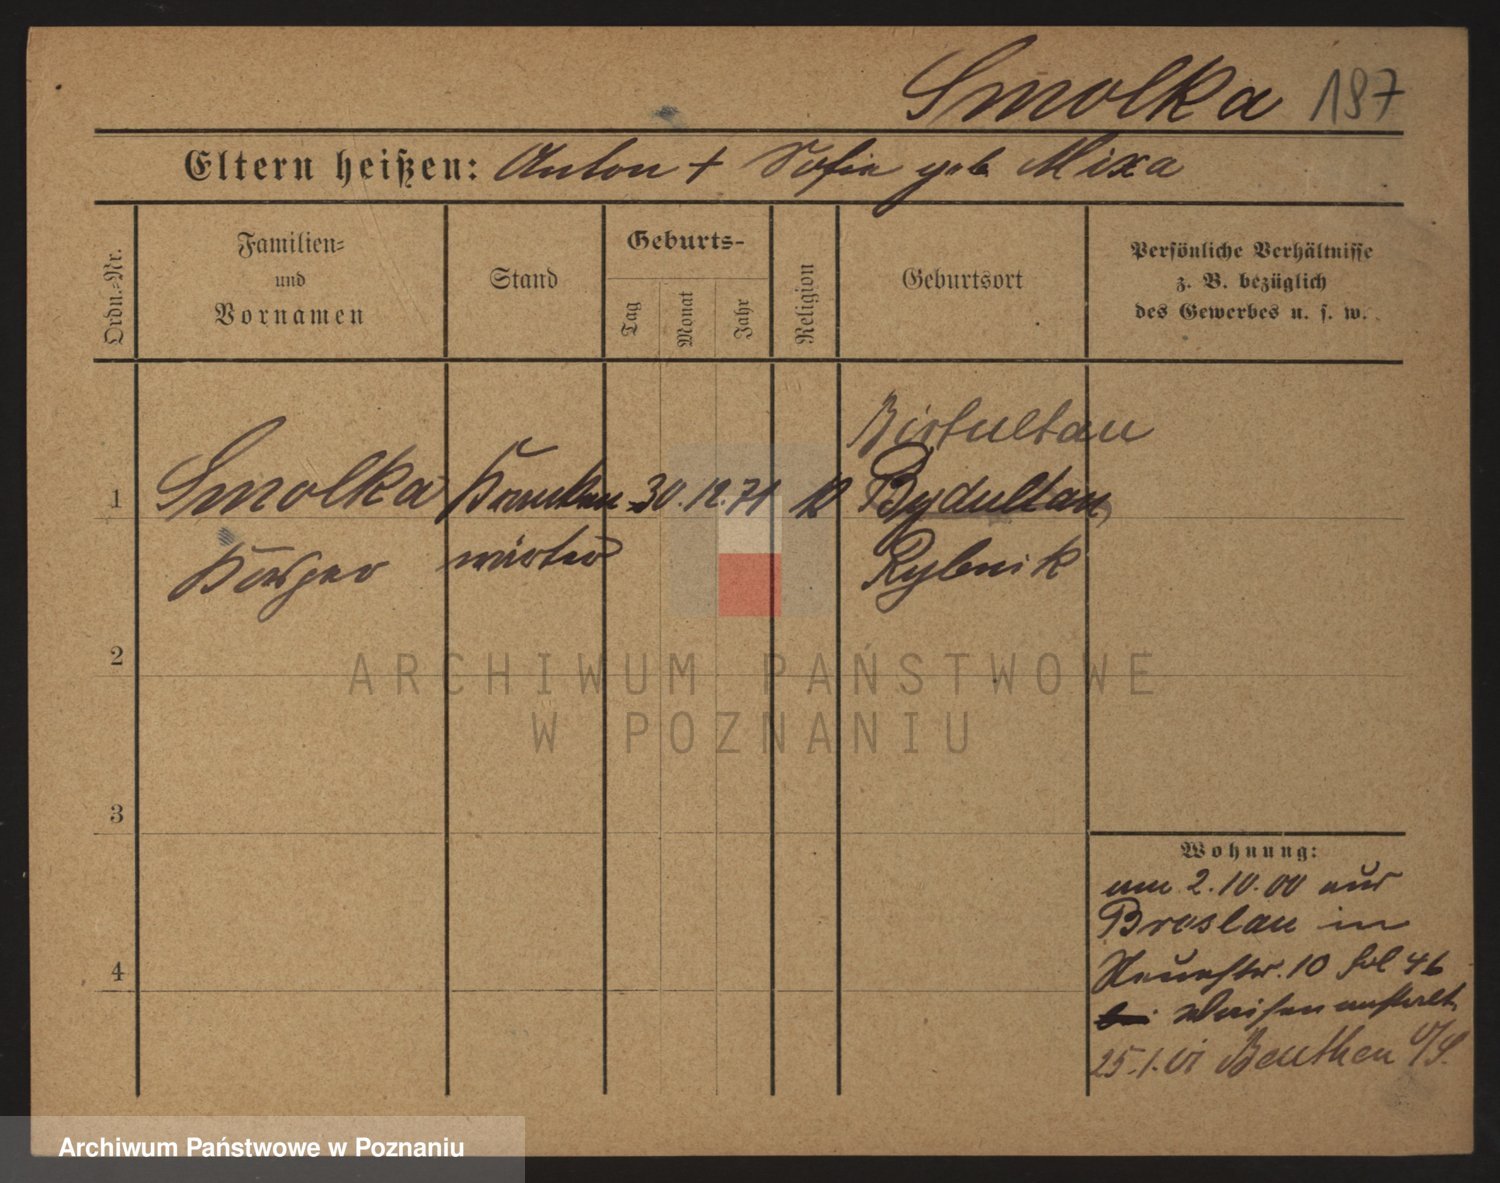 Smolka 187
Eltern heißen: Anton + Sofie geb Mixa
Ordn.-Nr.
Familien-
und
Vornamen
Stand
Geburts-
Tag
Monat
Jahr
Religion
Geburtsort
Persönliche Verhältnisse
z. B. bezüglich
des Gewerbes u. s. w.
Birtultau
1 Smolka Kranken 30. 12. 71 k Bydultau
Kasper wärter Rybnik
2
3
4
Wohnung:
am 2.10.00 aus
Breslau in
10 46
Waisenanstalt
25.1.01 Beuthen O/S.
ARCHIWUM PAŃSTWOWE
W POZNANIU
Archiwum Państwowe w Poznaniu